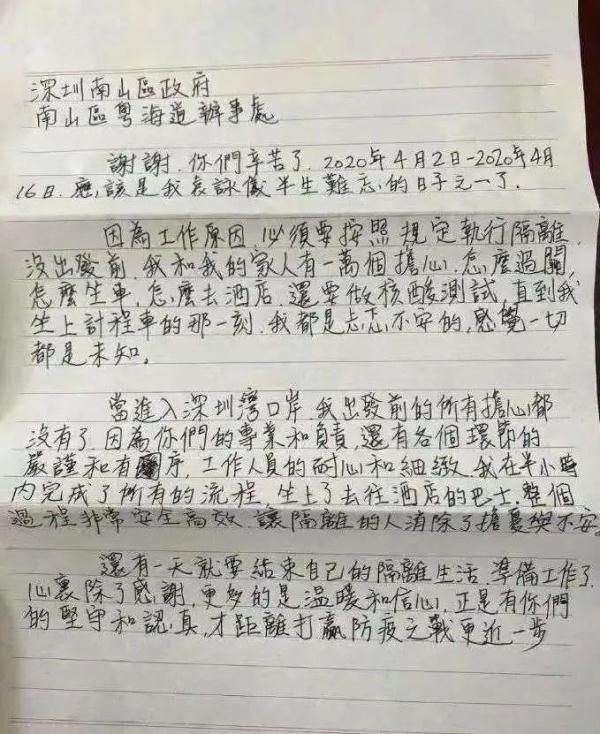 深圳南山區政府
南山區粵海道辦事處
謝謝.你們辛苦了.2020年4月2日-2020年4月
16日.應該是我袁詠儀半生難忘的日子元一了.
因為工作原因.必須要按照規定執行隔離.
沒出發前.我和我的家人有一萬個擔心.怎麼過關,
怎麼坐車,怎麼去酒店.還要做核酸測試,直到我
坐上計程車的那一刻.我都是忐忑不安的,感覺一切
都是未知。
當進入深圳灣口岸.我出發前的所有擔心都
沒有了.因為你們的專業和負責,還有各個環節的
嚴謹和有序,工作人員的耐心和細緻.我在半小時
內完成了所有的流程,坐上了去往酒店的巴士,整個
過程非常安全高效.讓隔離的人消除了擔憂與不安。
還有一天就要結束自己的隔離生活.準備工作了.
心裏除了感謝.更多的是溫暖和信心.正是有你們
的堅守和認真,才距離打贏防疫之戰更近一步